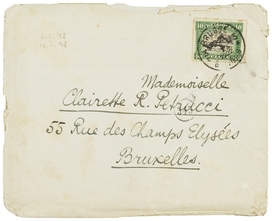 Mademoiselle
Clairette R. Petrucci
55 Rue des Champs Elysées
Bruxelles.